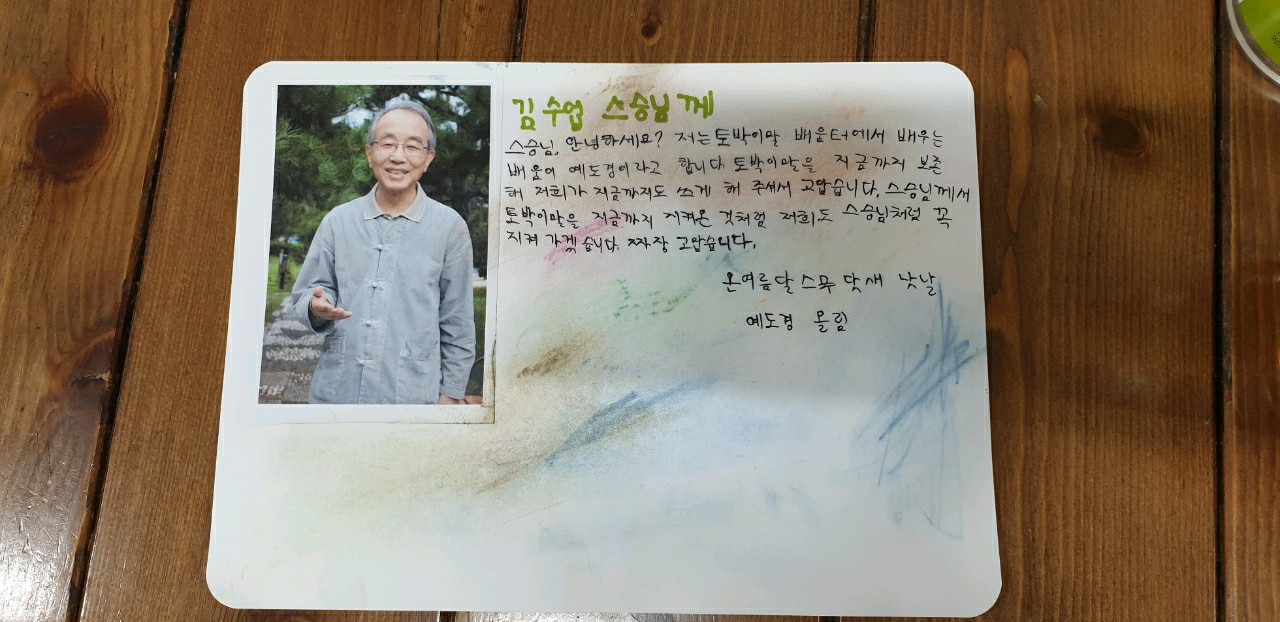 김수업 스승님께
스승님, 안녕하세요? 저는 토박이말 배움터에서 배우는
배움이 예도경이라고 합니다. 토박이말을 지금까지 보존
해 저희가 지금까지도 쓰게 해 주셔서 고맙습니다. 스승님께서
토박이말을 지금까지 지켜온 것처럼 저희도 스승님처럼 꼭
지켜 가겠습니다. 짜장 고맙습니다.
온여름달 스무 닷새 낫날
예도경 올림